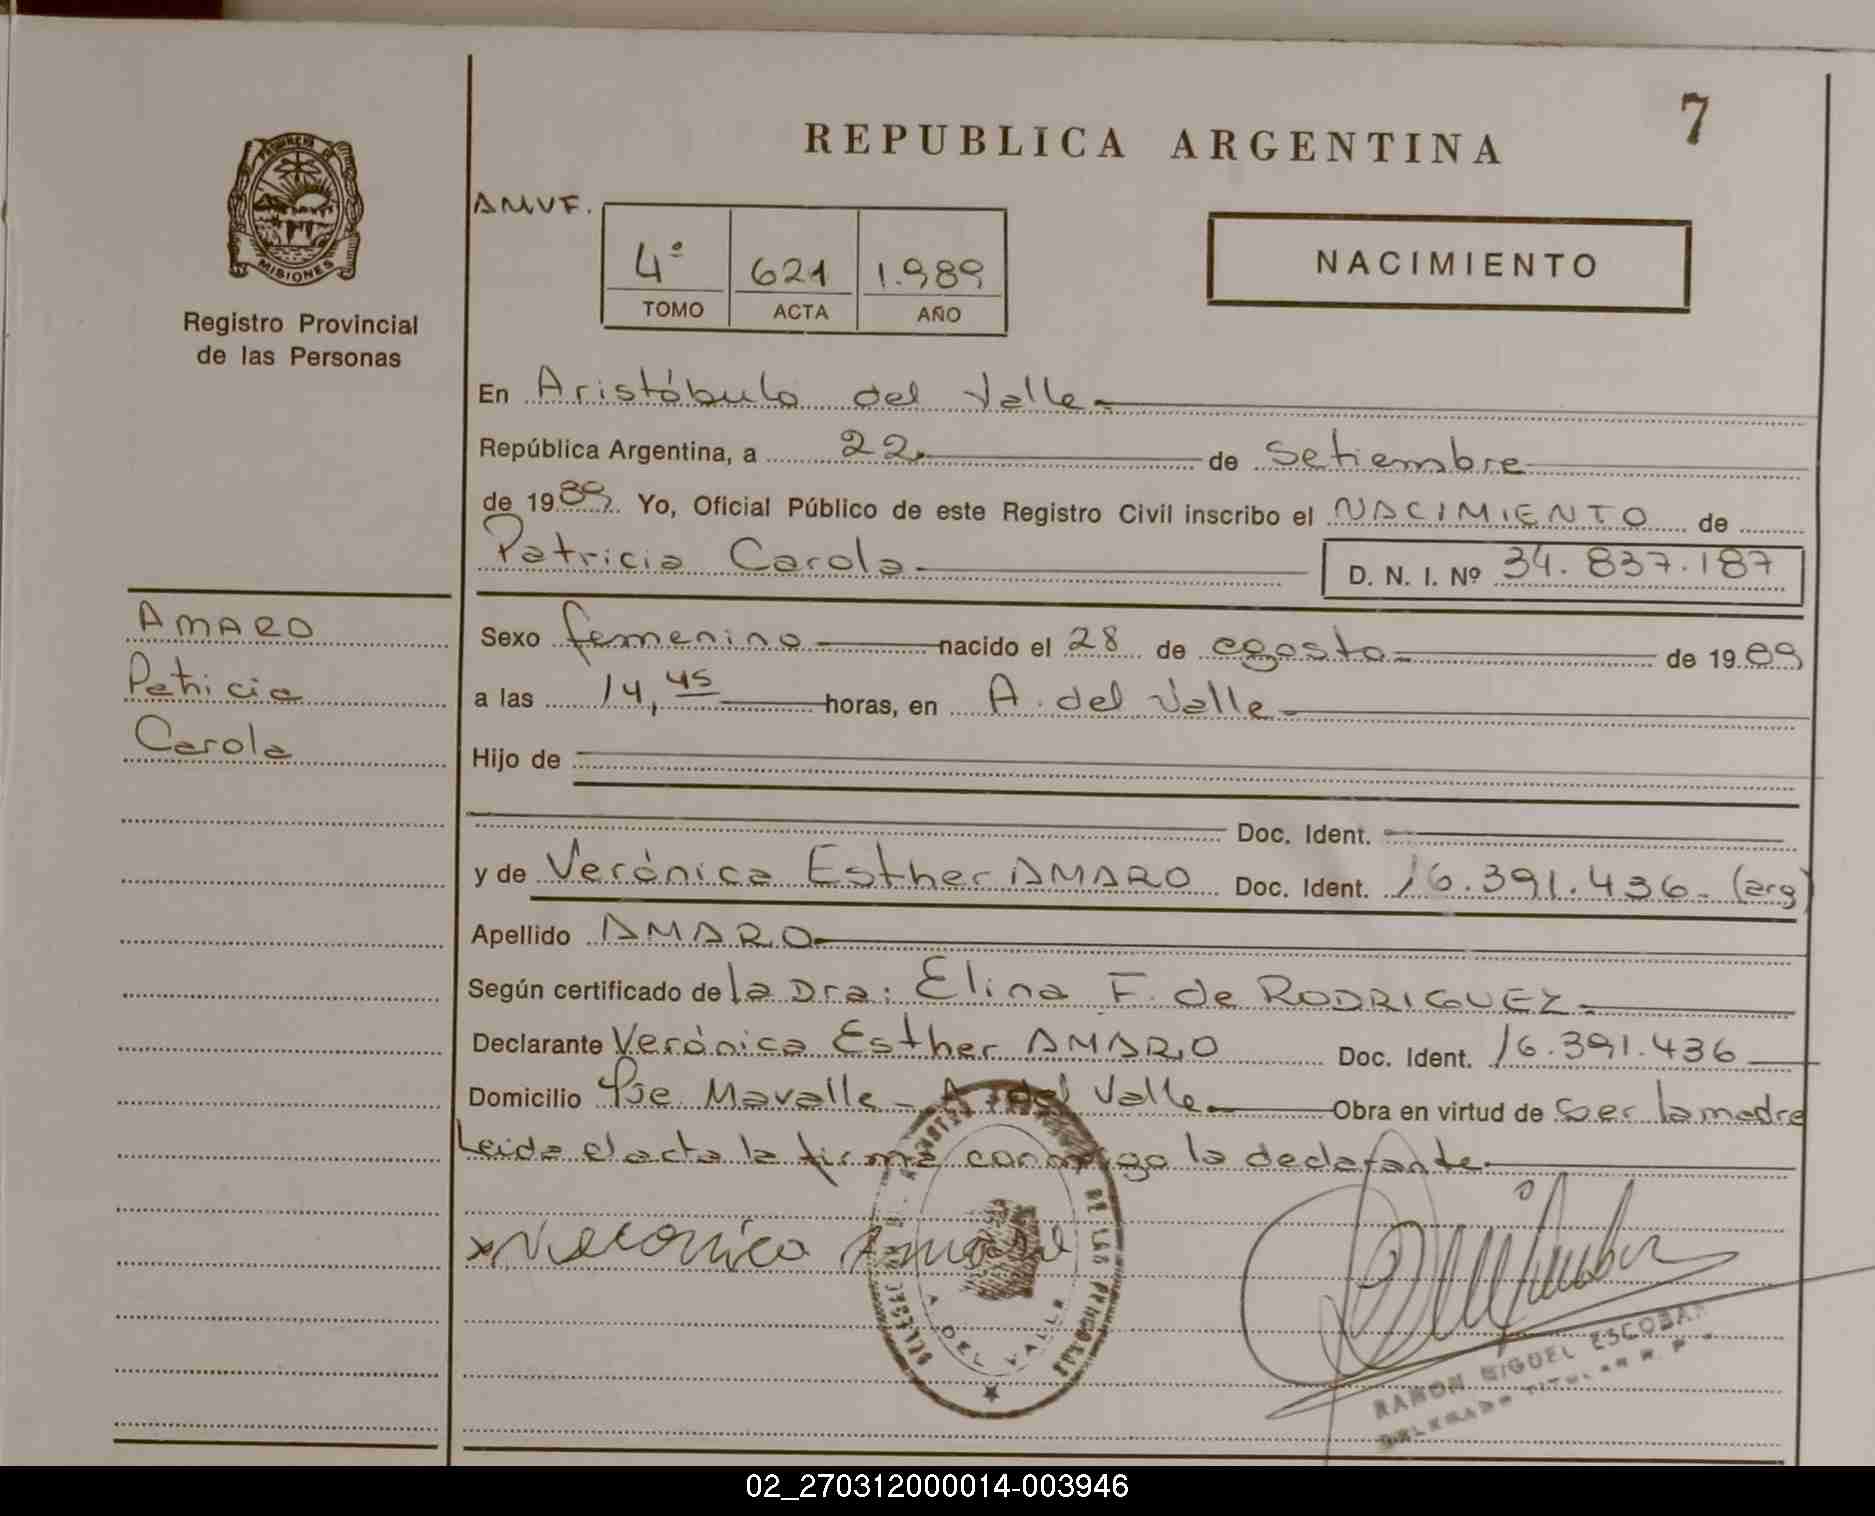 REPUBLICA ARGENTINA
7
PROVINCIA DE
MISIONES
Registro Provincial
de las Personas
AMVF.
4º 621 1.989
TOMO ACTA AÑO
NACIMIENTO
En Aristóbulo del Valle
República Argentina, a 22 de Setiembre
de 1989. Yo, Oficial Público de este Registro Civil inscribo el NACIMIENTO de
Patricia Carola D. N. I. Nº 34.837.187
AMARO
Patricia
Carola
Sexo femenino nacido el 28 de agosto de 1989
a las 14,45 horas, en A. del Valle
Hijo de
Doc. Ident.
y de Verónica Esther AMARO Doc. Ident. 16.391.436. (arg)
Apellido AMARO
Según certificado de la Dra: Elina F. de RODRIGUEZ
Declarante Verónica Esther AMARO Doc. Ident. 16.391.436
Domicilio Pje Mavalle - A. del Valle Obra en virtud de ser la madre
Leida el acta la firma conmigo la declarante.
x Veronica Amaro
DE LAS PERSONAS
A. DEL VALLE
RAMON MIGUEL ESCOBAR
DELEGADO TITULAR R. P.
02_270312000014-003946